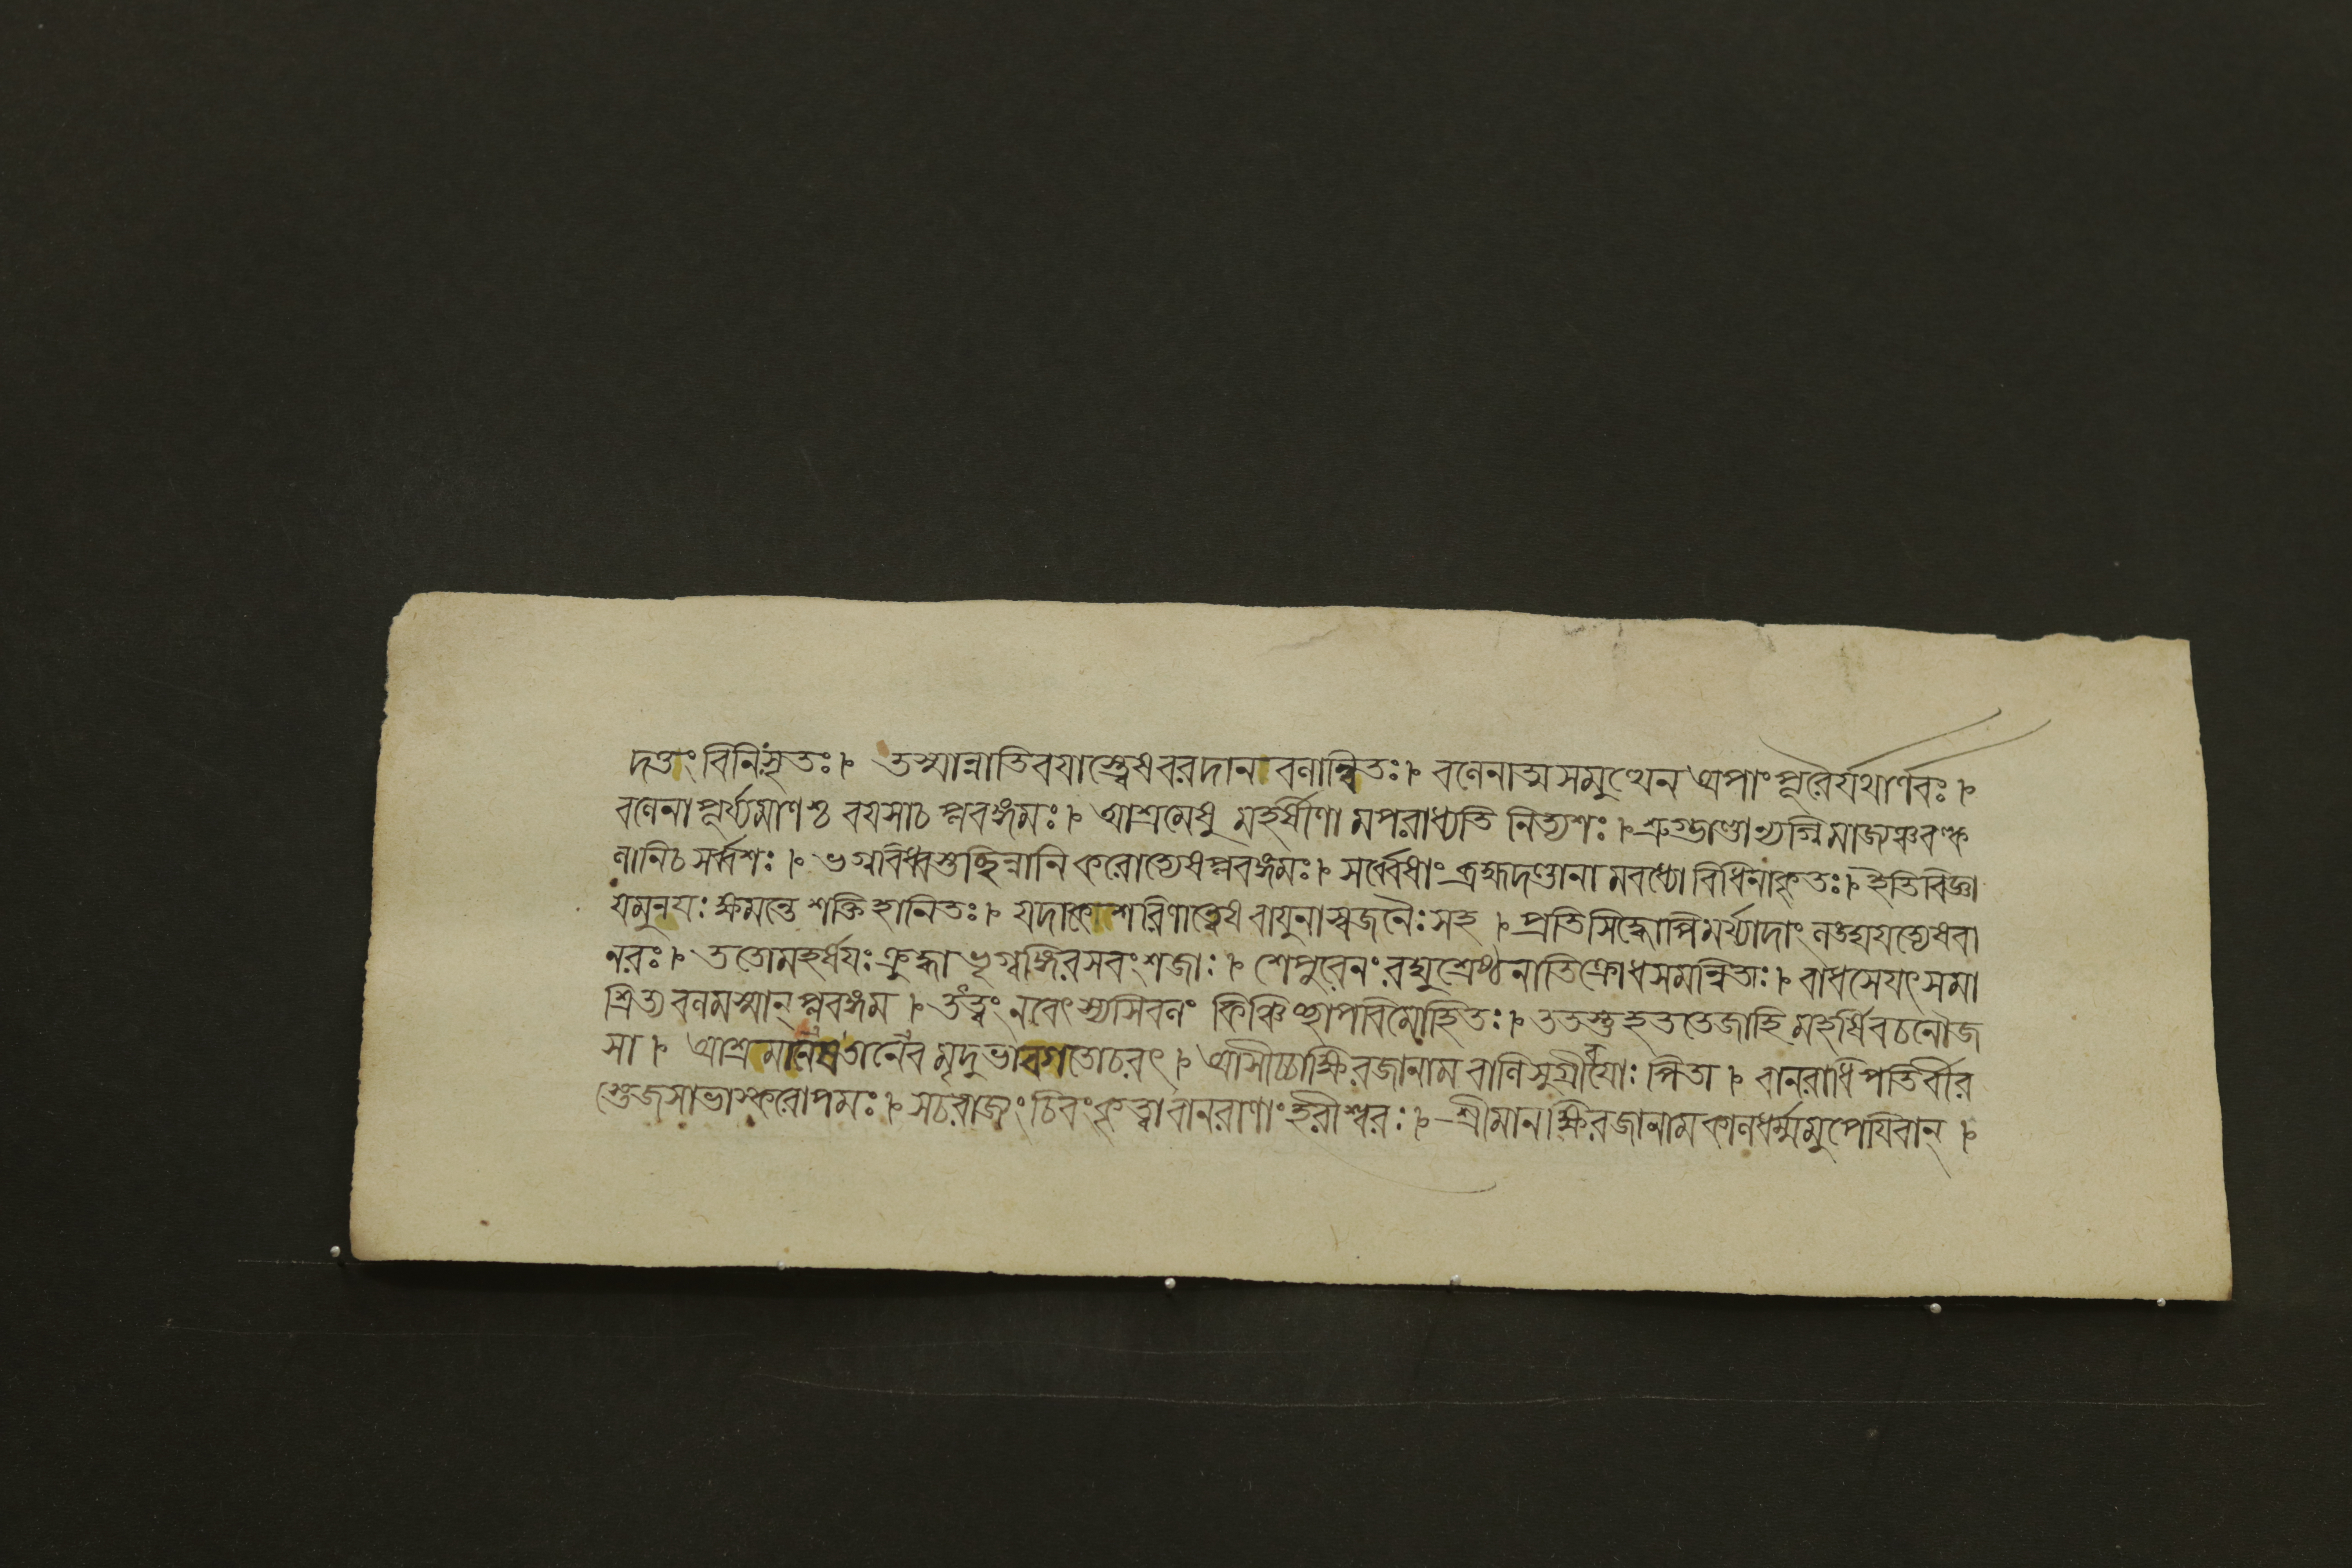 দত্তং বিনিসৃতঃ। তস্মান্নাতিবযাস্ত্বেষ বরদান বলান্বিতঃ। বলেনাত্ম সমুত্থেন অপাং পূরৈর্যথার্ণবঃ।
বলেনা পূর্য্যমাণশ্চ বযসাচ প্লবঙ্গমঃ। আশ্রমেষু মহর্ষীণা মপরাধ্যতি নিত্যশঃ। স্রুগ্ভাণ্ডান্যগ্নিমাজ্যঞ্চ বল্ক
লানিচ সর্ব্বশঃ। ভগ্নবিধ্বস্তচ্ছিন্নানি করোত্যেষ প্লবঙ্গমঃ। সর্ব্বেষাং ব্রহ্মদণ্ডানা মবধ্যো বিধিনাকৃতঃ। ইতি বিজ্ঞা
য মুনযঃ ক্ষমন্তে শক্তি হানিতঃ। যদা কেশরিণাত্বেষ বাযুনা স্বজনৈঃ সহ। প্রতিসিদ্ধোপি মর্য্যাদাং লঙ্ঘযত্যেষ বা
নরঃ। ততো মহর্ষযঃ ক্রুদ্ধা ভৃগ্বঙ্গিরস বংশজাঃ। শেপুরেনং রঘুশ্রেষ্ঠ নাতিক্রোধ সমন্বিতাঃ। বাধসে যৎ সমা
শ্রিত্য বলমস্মান্ প্লবঙ্গম। তত্ত্বং নবেৎস্যসি বলং কিঞ্চিচ্ছাপ বিমোহিতঃ। ততস্তু হৃততেজাহি মহর্ষি বচনৌজ
সা। আশ্রমানেষ তানেব মৃদুভাব গতোচরৎ। আসীচ্চাক্ষিরজা নাম বালি সুগ্রীবযোঃ পিতা। বানরাধিপতির্বীর
স্তেজসা ভাস্করোপমঃ। সচ রাজ্যং চিরং কৃত্বা বানরাণাং হরীশ্বরঃ। শ্রীমানাক্ষিরজা নাম কালধর্ম্মমুপেযিবান্।